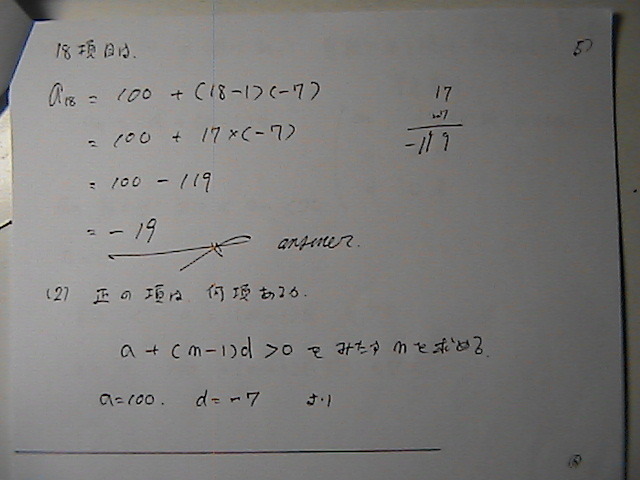 18項目は. 5)
a18 = 100 + (18-1)(-7)
= 100 + 17×(-7)
= 100 - 119
= - 19
17
-7
-119
answer.
(2) 正の項は 何項あるか.
a + (n-1)d >0 を みたす nを求める.
a=100. d= -7 より